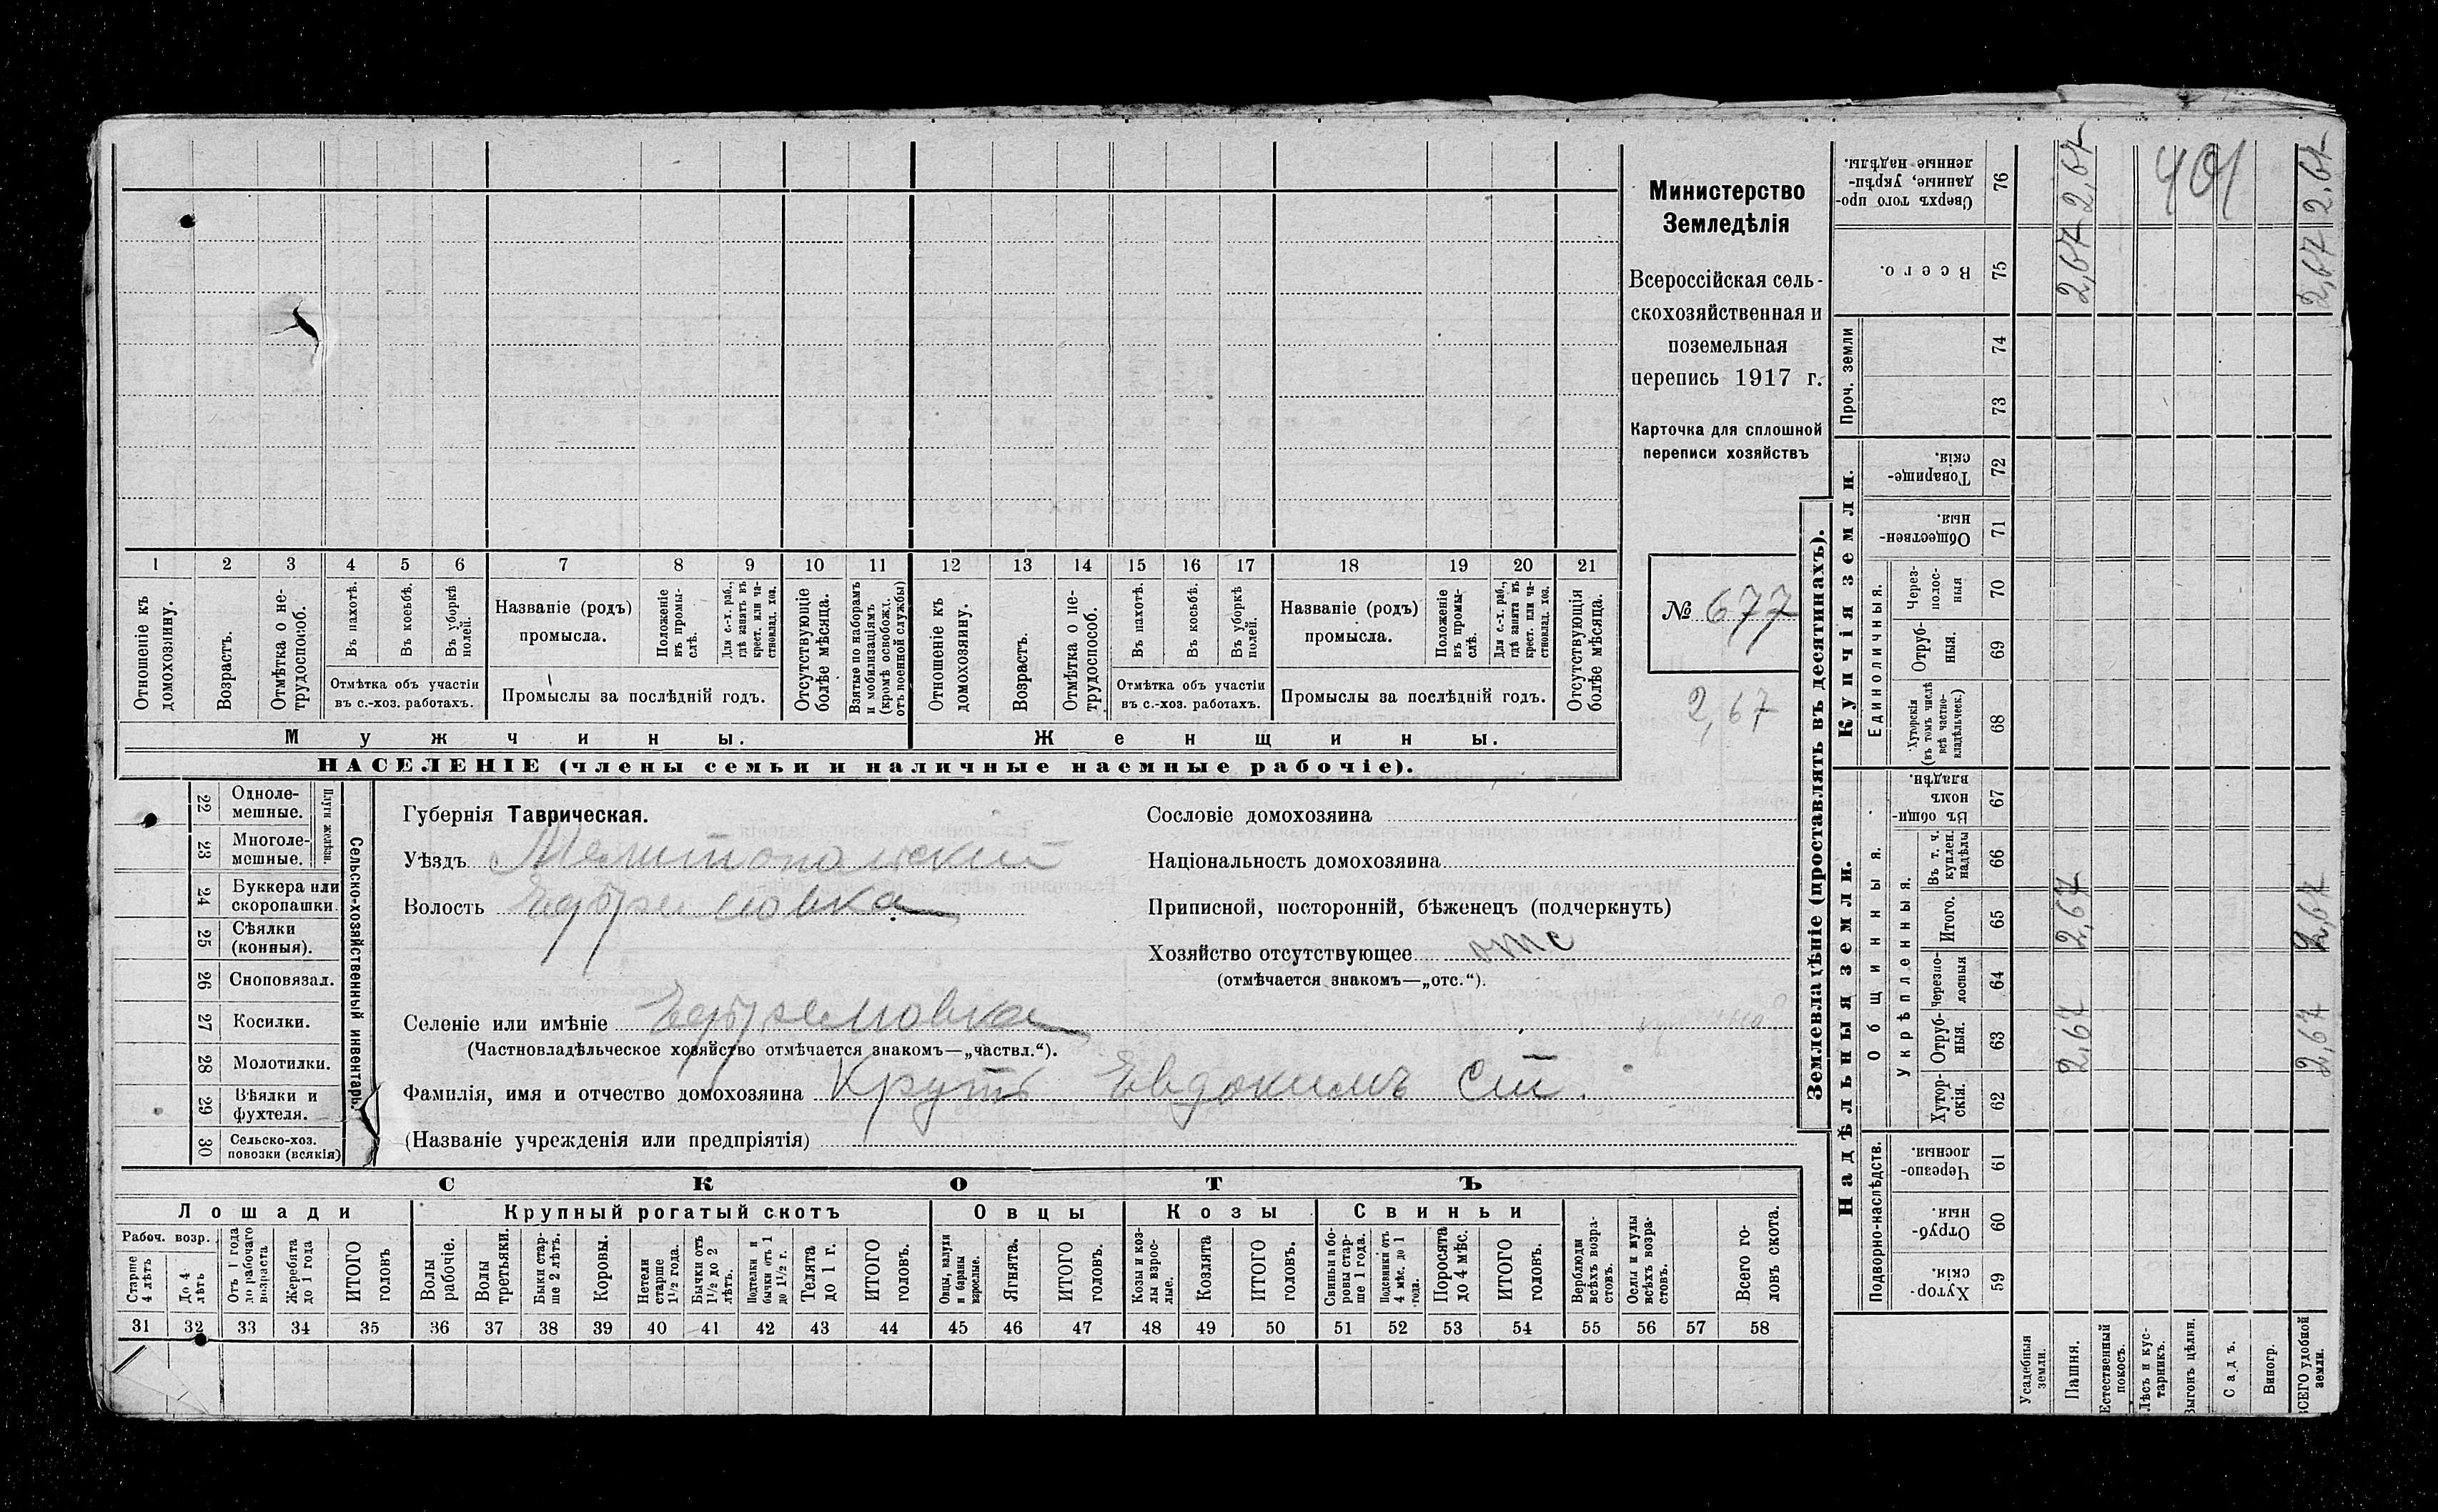 1 2 3 4 5 6 7 8 9 10 11 12 13 14 15 16 17 18 19 20 21
Отношеніе къ домохозяину.
Возрастъ.
Отмѣтка о не-трудоспособ.
Въ пахотѣ.
Въ косьбѣ.
Въ уборкѣ полей.
Отмѣтка объ участіи
въ с.-хоз. работахъ.
Названіе (родъ)
промысла.
Положеніе въ промы-слѣ.
Для с.-х. раб., гдѣ занятъ въ крест. или ча-стновлад. хоз.
Промыслы за послѣдній годъ.
Отсутствующіе болѣе мѣсяца.
Взятые по наборамъ и мобилизаціямъ (кромѣ освобожд. отъ военной службы)
Отношеніе къ домохозяину.
Возрастъ.
Отмѣтка о не-трудоспособ.
Въ пахотѣ.
Въ косьбѣ.
Въ уборкѣ полей.
Отмѣтка объ участіи
въ с.-хоз. работахъ.
Названіе (родъ)
промысла.
Положеніе въ промы-слѣ.
Для с.-х. раб., гдѣ занята въ крест. или ча-стновлад. хоз.
Промыслы за послѣдній годъ.
Отсутствующія болѣе мѣсяца.
Мужчины.
Женщины.
НАСЕЛЕНІЕ (члены семьи и наличные наемные рабочіе).
Министерство
Земледѣлія
Всероссійская сель-
скохозяйственная и
поземельная
перепись 1917 г.
Карточка для сплошной
переписи хозяйствъ
№ 677
2,67
Сельско-хозяйственный инвентарь.
Плуги желѣзн.
22 Одноле-мешные.
23 Многоле-мешные.
24 Буккера или скоропашки.
25 Сѣялки (конныя).
26 Сноповязал.
27 Косилки.
28 Молотилки.
29 Вѣялки и фухтеля.
30 Сельско-хоз. повозки (всякія)
Губернія Таврическая.
Уѣздъ Мелитопольскій
Волость Ефремовка
Селеніе или имѣніе Ефремовка
(Частновладѣльческое хозяйство отмѣчается знакомъ—„частвл.“).
Фамилія, имя и отчество домохозяина Круть Евдокимъ Ст.
(Названіе учрежденія или предпріятія)
Сословіе домохозяина
Національность домохозяина
Приписной, посторонній, бѣженецъ (подчеркнуть)
Хозяйство отсутствующее отс
(отмѣчается знакомъ—„отс.“).
СКОТЪ
Лошади
Крупный рогатый скотъ
Овцы
Козы
Свиньи
Рабоч. возр.
Старше 4 лѣтъ
До 4 лѣтъ
Отъ 1 года до рабочаго возраста
Жеребята до 1 года
ИТОГО головъ
Волы рабочіе.
Волы третьяки.
Быки стар-ше 2 лѣтъ.
Коровы.
Нетели старше 1½ года.
Бычки отъ 1½ до 2 лѣтъ.
Подтелки и бычки отъ 1 до 1½ г.
Телята до 1 г.
ИТОГО головъ.
Овцы, валухи и бараны взрослые.
Ягнята.
ИТОГО головъ.
Козы и коз-лы взрос-лые.
Козлята
ИТОГО головъ.
Свиньи и бо-ровы стар-ше 1 года.
Подсвинки отъ 4 мѣс. до 1 года.
Поросята до 4 мѣс.
ИТОГО головъ.
Верблюды всѣхъ возра-стовъ.
Ослы и мулы всѣхъ возра-стовъ.
Всего го-ловъ скота.
31 32 33 34 35 36 37 38 39 40 41 42 43 44 45 46 47 48 49 50 51 52 53 54 55 56 57 58
Землевладѣніе (проставлять въ десятинахъ).
Надѣльныя земли.
Купчія земли.
Проч. земли
Сверхъ того про-данные, укрѣп-ленные надѣлы. 76
Всего. 75
74
73
Товарище-скія. 72
Обществен-ныя. 71
Единоличныя.
Черезполос-ныя 70
Отруб-ныя. 69
Хуторскія (въ томъ числѣ всѣ частно-владѣльческ.) 68
Общинныя.
Въ общин-номъ владѣн. 67
Укрѣпленныя.
Въ т. ч. куплен. надѣлы 66
Итого. 65
Черезпо-лосныя 64
Отруб-ныя. 63
Хутор-скія. 62
Подворно-наслѣдств.
Черезпо-лосныя. 61
Отруб-ныя. 60
Хутор-скія. 59
Усадебныя земли.
Пашня.
Естественный покосъ.
Лѣсъ и кус-тарникъ.
Выгонъ цѣлин.
Садъ.
Виногр.
ВСЕГО удобной земли.
2,67 2,67 2,67 2,67
401
2,67 2,67 2,67 2,67